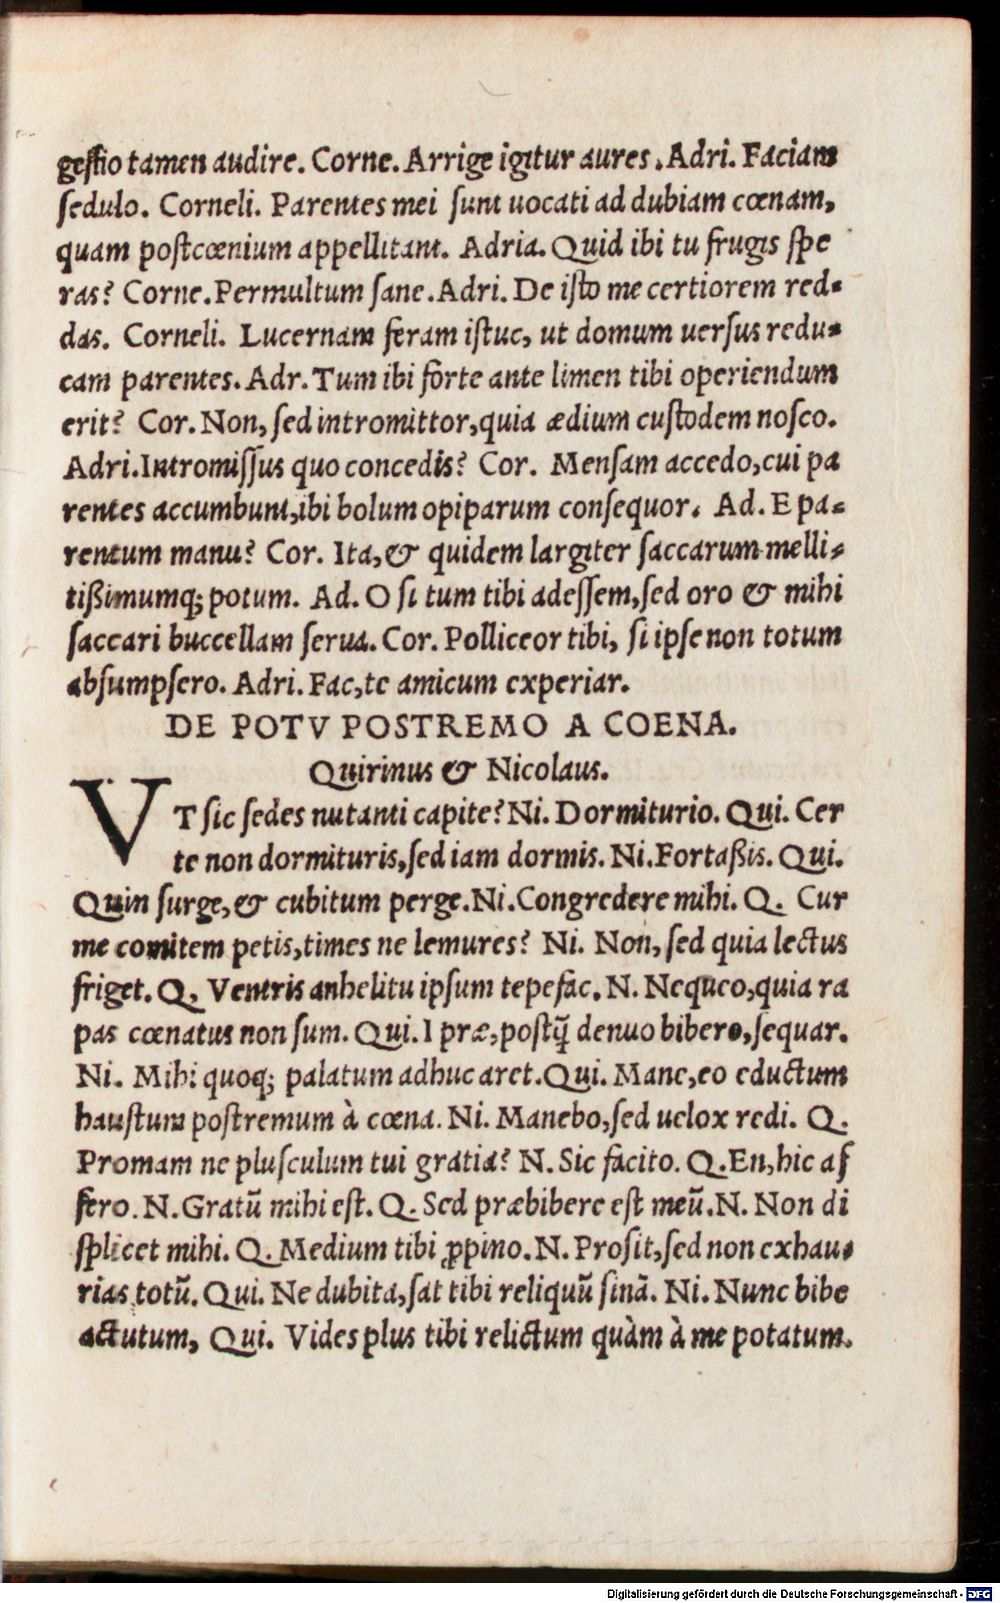 gestio tamen audire. Corne. Arrige igitur aures. Adri. Faciam
sedulo. Corneli. Parentes mei sunt uocati ad dubiam cœnam,
quam postcœnium appellitant. Adria. Quid ibi tu frugis spe
ras? Corne. Permultum sane. Adri. De isto me certiorem red-
das. Corneli. Lucernam feram istuc, ut domum uersus redu-
cam parentes. Adr. Tum ibi forte ante limen tibi operiendum
erit? Cor. Non, sed intromittor, quia ædium custodem nosco.
Adri. Intromissus quo concedis? Cor. Mensam accedo, cui pa
rentes accumbunt, ibi bolum opiparum consequor. Ad. E pa-
rentum manu? Cor. Ita, & quidem largiter saccarum melli-
tißimumq; potum. Ad. O si tum tibi adessem, sed oro & mihi
saccari buccellam serua. Cor. Polliceor tibi, si ipse non totum
absumpsero. Adri. Fac, te amicum experiar.
DE POTV POSTREMO A COENA.
Quirinus & Nicolaus.
VT sic sedes nutanti capite? Ni. Dormiturio. Qui. Cer
te non dormituris, sed iam dormis. Ni. Fortaßis. Qui.
Quin surge, & cubitum perge. Ni. Congredere mihi. Q. Cur
me comitem petis, times ne lemures? Ni. Non, sed quia lectus
friget. Q. Ventris anhelitu ipsum tepefac. N. Nequeo, quia ra
pas cœnatus non sum. Qui. I præ, postq̃ denuo bibero, sequar.
Ni. Mihi quoq; palatum adhuc aret. Qui. Mane, eo eductum
haustum postremum à cœna. Ni. Manebo, sed uelox redi. Q.
Promam ne plusculum tui gratia? N. Sic facito. Q. En, hic af
fero. N. Gratũ mihi est. Q. Sed præbibere est meũ. N. Non di
splicet mihi. Q. Medium tibi ꝓpino. N. Prosit, sed non exhau-
rias totũ. Qui. Ne dubita, sat tibi reliquũ sinã. Ni. Nunc bibe
actutum, Qui. Vides plus tibi relictum quàm à me potatum.
Digitalisierung gefördert durch die Deutsche Forschungsgemeinschaft - DFG